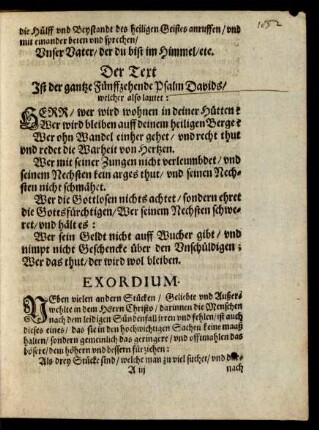 1052
die Hülff vnd Beystandt des heiligen Geistes anruffen/ vnd
mit einander beten vnd sprechen/
Vnser Vater/ der du bist im Himmel/ etc.
Der Text
Ist der gantze Fünffzehende Psalm Davids/
welcher also lautet:
HERR/ wer wird wohnen in deiner Hütten?
Wer wird bleiben auff deinem heiligen Berge?
Wer ohn Wandel einher gehet/ vnd recht thut
vnd redet die Warheit von Hertzen.
Wer mit seiner Zungen nicht verleumbdet/ vnd
seinem Nechsten kein arges thut/ vnd seinen Nech-
sten nicht schmähet.
Wer die Gottlosen nichts achtet/ sondern ehret
die Gottsfürchtigen/ Wer seinem Nechsten schwe-
ret/ vnd hält es:
Wer sein Geldt nicht auff Wucher gibt/ vnd
nimpt nicht Geschencke über den Vnschüldigen;
Wer das thut/ der wird wol bleiben.
EXORDIUM.
NEben vielen andern Stücken/ Geliebte vnd Außer-
wehlte in dem HErrn Christo/ darinnen die Menschen
nach dem leidigen Sündenfall irren vnd fehlen/ ist auch
dieses eines/ das sie in den hochwichtigen Sachen keine maaß
halten/ sondern gemeinlich das geringere/ vnd offtmahlen das
bösere/ dem höhern vnd bessern fürziehen:
Als drey Stücke sind/ welche man zu viel suchet/ vnd
A iij nach